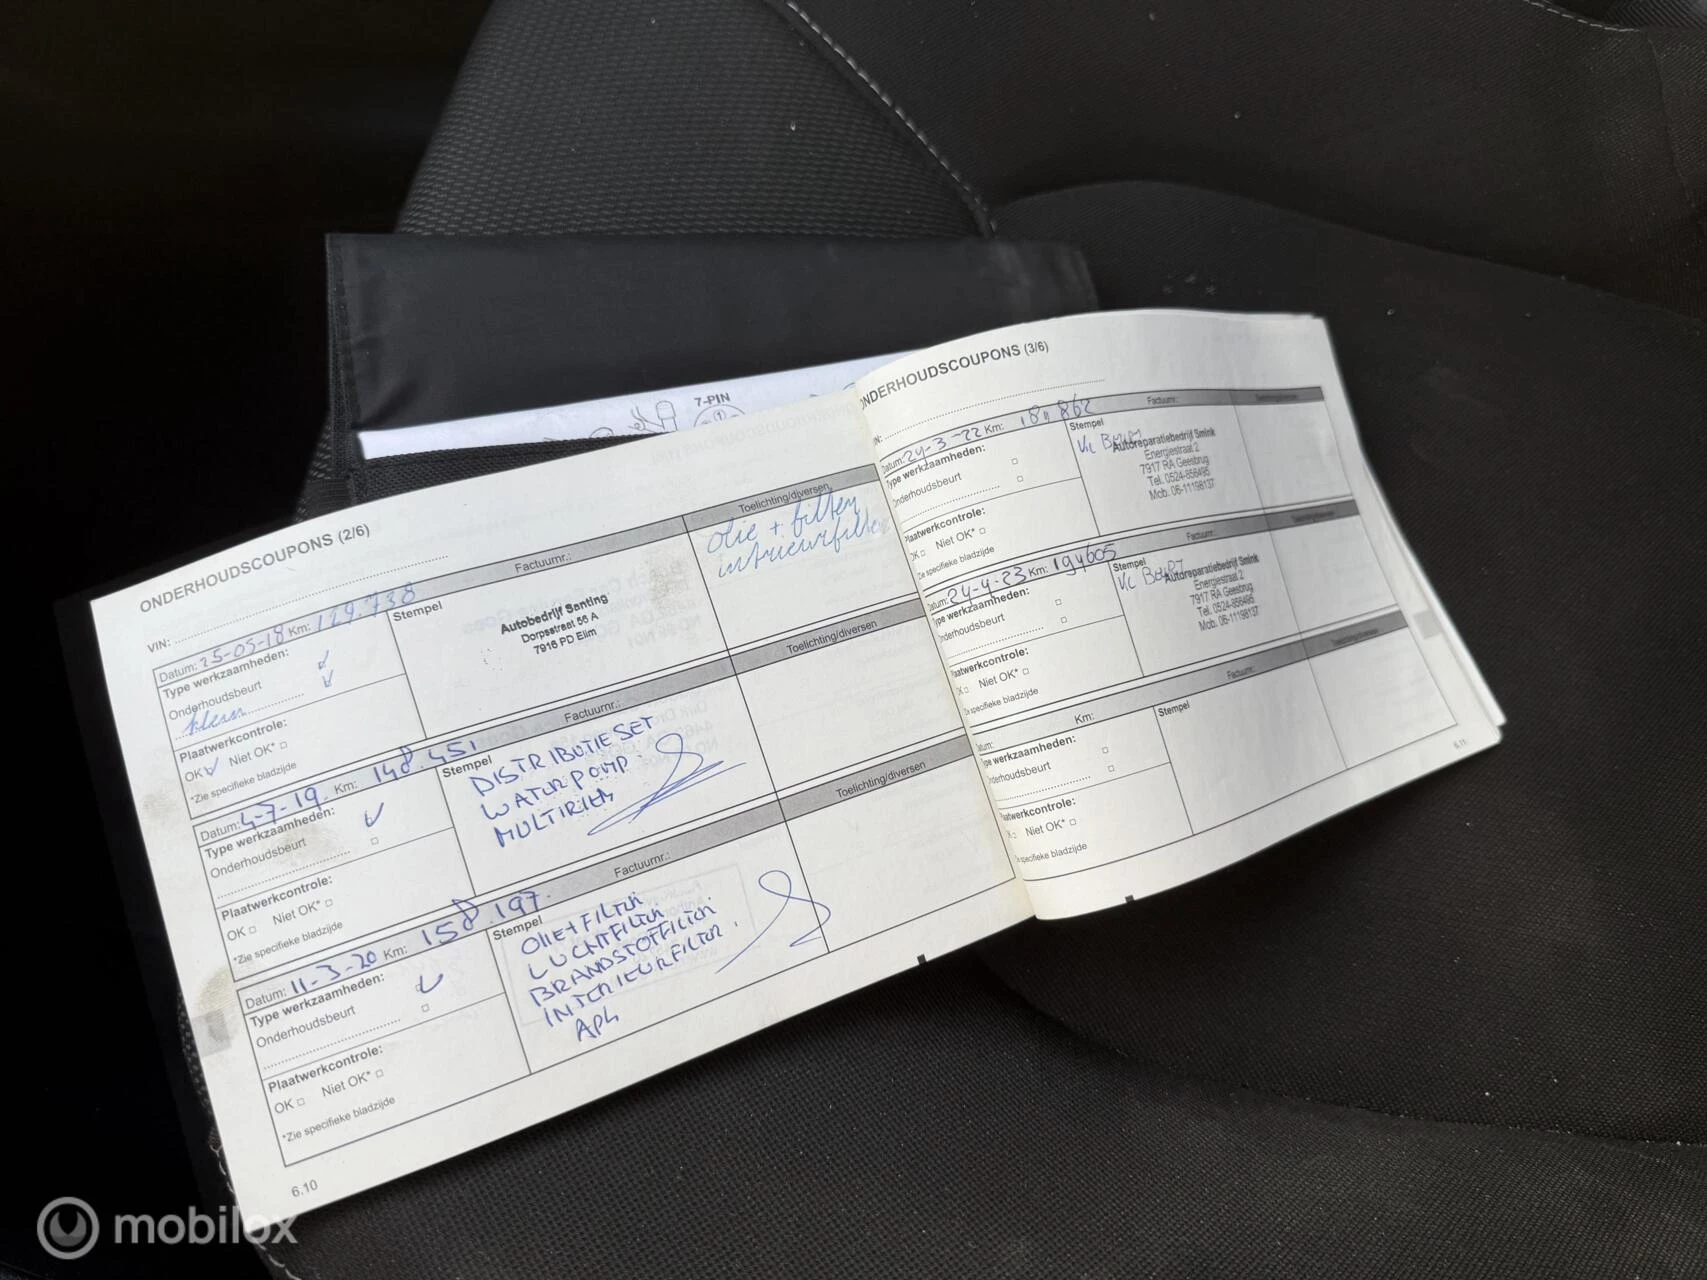 7-PIN
ONDERHOUDSCOUPONS (2/6)
VIN:
Datum: 25-05-18 Km: 129.738 Factuurnr.:
Type werkzaamheden:
Onderhoudsbeurt
klein
Plaatwerkcontrole:
OK Niet OK*
*Zie specifieke bladzijde
Stempel
Autobedrijf Santing
Dorpsstraat 56 A
7916 PD Elim
Toelichting/diversen
olie + filter
interieurfilter
Datum: 4-7-19. Km: 148.451 Factuurnr.:
Type werkzaamheden:
Onderhoudsbeurt
Plaatwerkcontrole:
OK Niet OK*
*Zie specifieke bladzijde
Stempel
DISTRIBUTIESET
WATERPOMP
MULTIRIEM
Toelichting/diversen
Datum: 11-3-20 Km: 158.197. Factuurnr.:
Type werkzaamheden:
Onderhoudsbeurt
Plaatwerkcontrole:
OK Niet OK*
*Zie specifieke bladzijde
Stempel
OLIE+FILTER
LUCHTFILTER
BRANDSTOFFILTER
INTERIEURFILTER
APK
Toelichting/diversen
6.10
ONDERHOUDSCOUPONS (3/6)
Datum: 24-3-22 Km: Factuurnr.:
Type werkzaamheden:
Onderhoudsbeurt
Plaatwerkcontrole:
OK Niet OK*
Zie specifieke bladzijde
Stempel
Autoreparatiebedrijf Smink
Energiestraat 2
7917 RA Geesbrug
Tel. 0524-856495
Mob. 06-11198137
Toelichting/diversen
Datum: 24-4-23 Km: 194605 Factuurnr.:
Type werkzaamheden:
Onderhoudsbeurt
Plaatwerkcontrole:
OK Niet OK*
Zie specifieke bladzijde
Stempel
Autoreparatiebedrijf Smink
Energiestraat 2
7917 RA Geesbrug
Tel. 0524-856495
Mob. 06-11198137
Toelichting/diversen
Datum: Km: Factuurnr.:
Type werkzaamheden:
Onderhoudsbeurt
Plaatwerkcontrole:
Niet OK*
Zie specifieke bladzijde
Stempel
Toelichting/diversen
6.11
mobilox